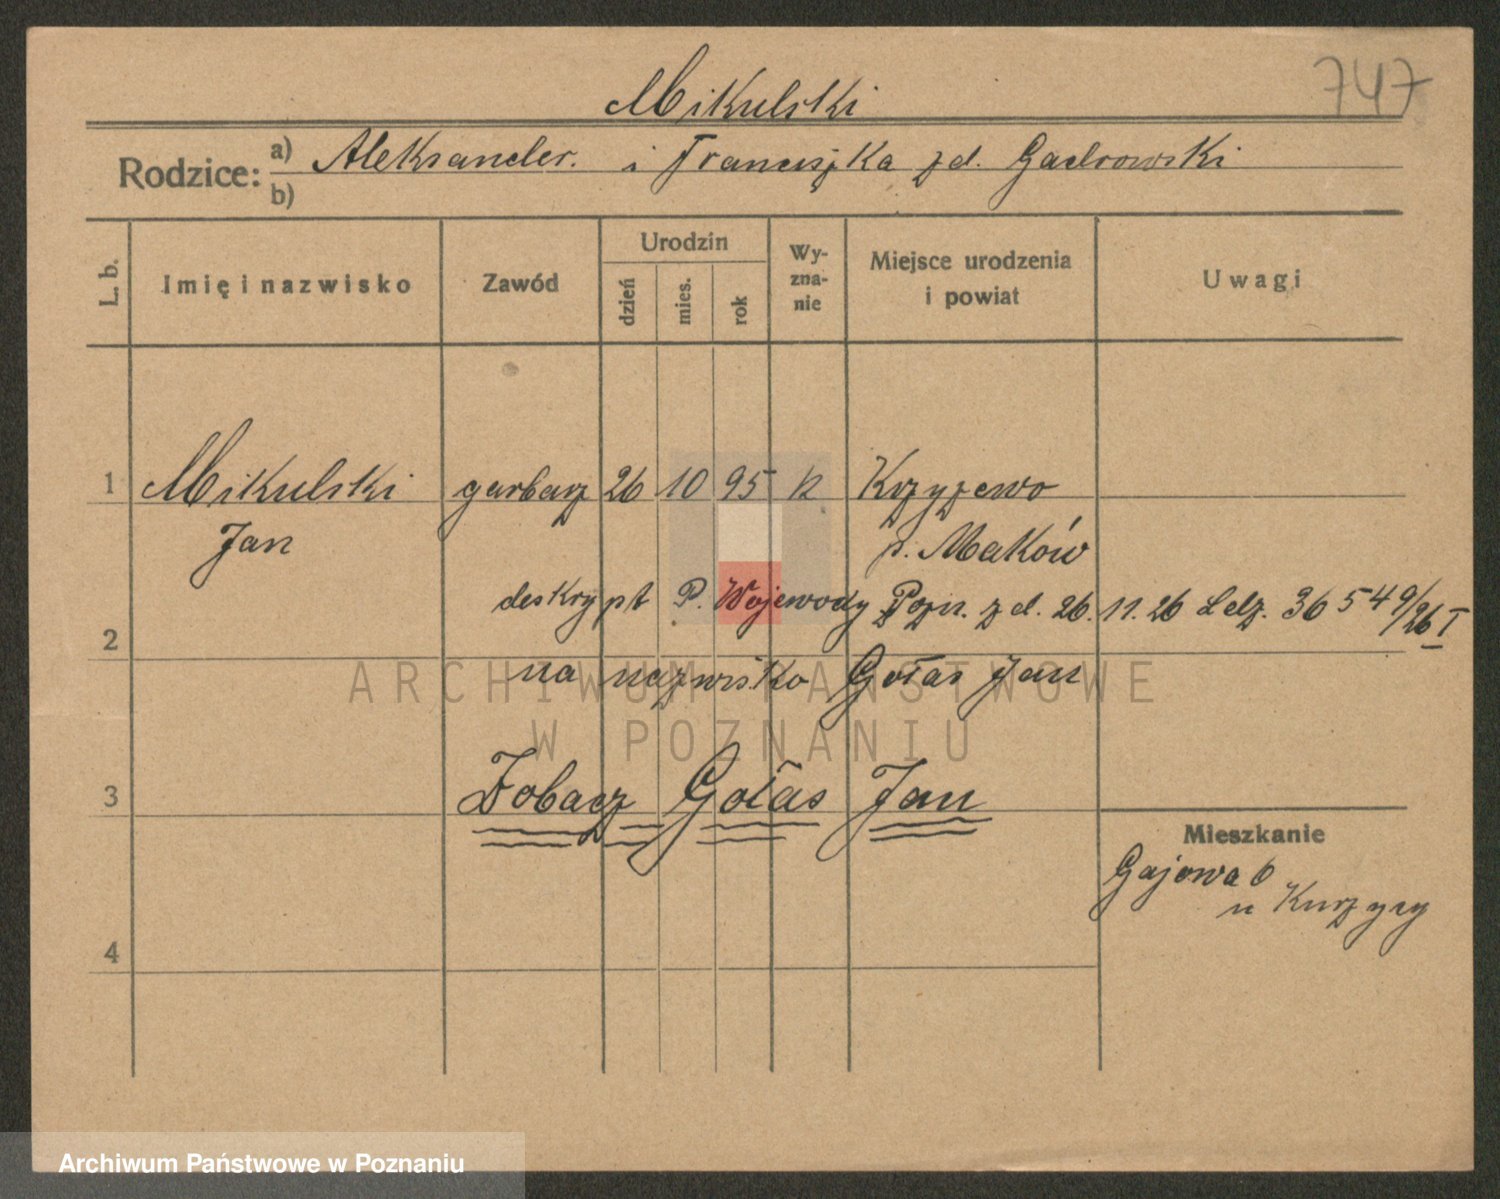 747
Mikulski
Rodzice: a) Aleksander. i Franciszka zd. Gadrowski
b)
L. b.
Imię i nazwisko
Zawód
Urodzin
dzień
mies.
rok
Wy-
zna-
nie
Miejsce urodzenia
i powiat
Uwagi
1 Mikulski garbarz 26 10 95 k Krzyżewo
Jan p. Maków
deskrypt P. Wojewody Pozn. z d. 26. 11. 26 Ldz. 36 549/26 I
2
na nazwisko Gołas Jan
3 Zobacz Gołas Jan
Mieszkanie
Gajowa 6
u Kurzycy
4
ARCHIWUM PAŃSTWOWE
W POZNANIU
Archiwum Państwowe w Poznaniu